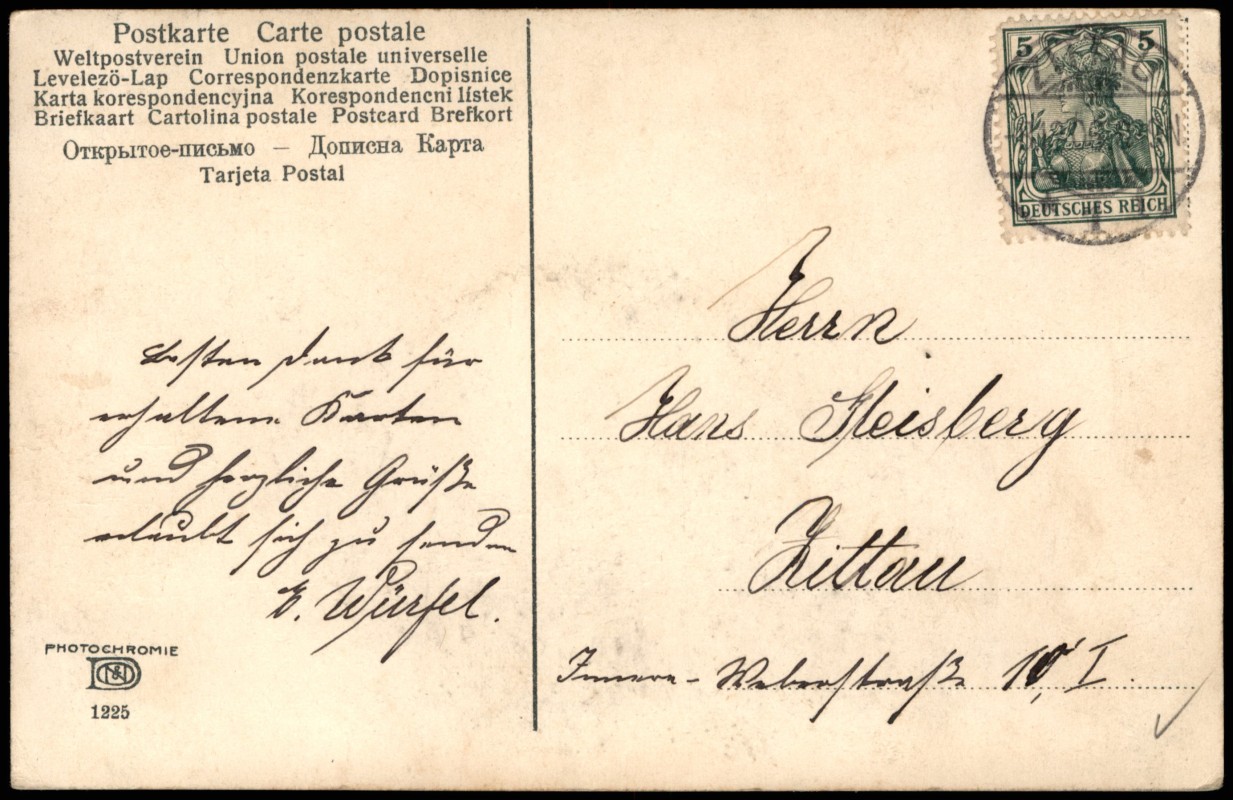 Postkarte Carte postale
Weltpostverein Union postale universelle
Levelezö-Lap Correspondenzkarte Dopisnice
Karta korespondencyjna Korespondencni lístek
Briefkaart Cartolina postale Postcard Brefkort
Открытое-письмо — Дописна Карта
Tarjeta Postal
5 5
DEUTSCHES REICH
Besten Dank für
erhaltene Karten
und herzliche Grüße
erlaubt sich zu senden
E. Würfel.
Herrn
Hans Steisberg
Zittau
Innere-Weberstraße 10, I.
PHOTOCHROMIE
1225